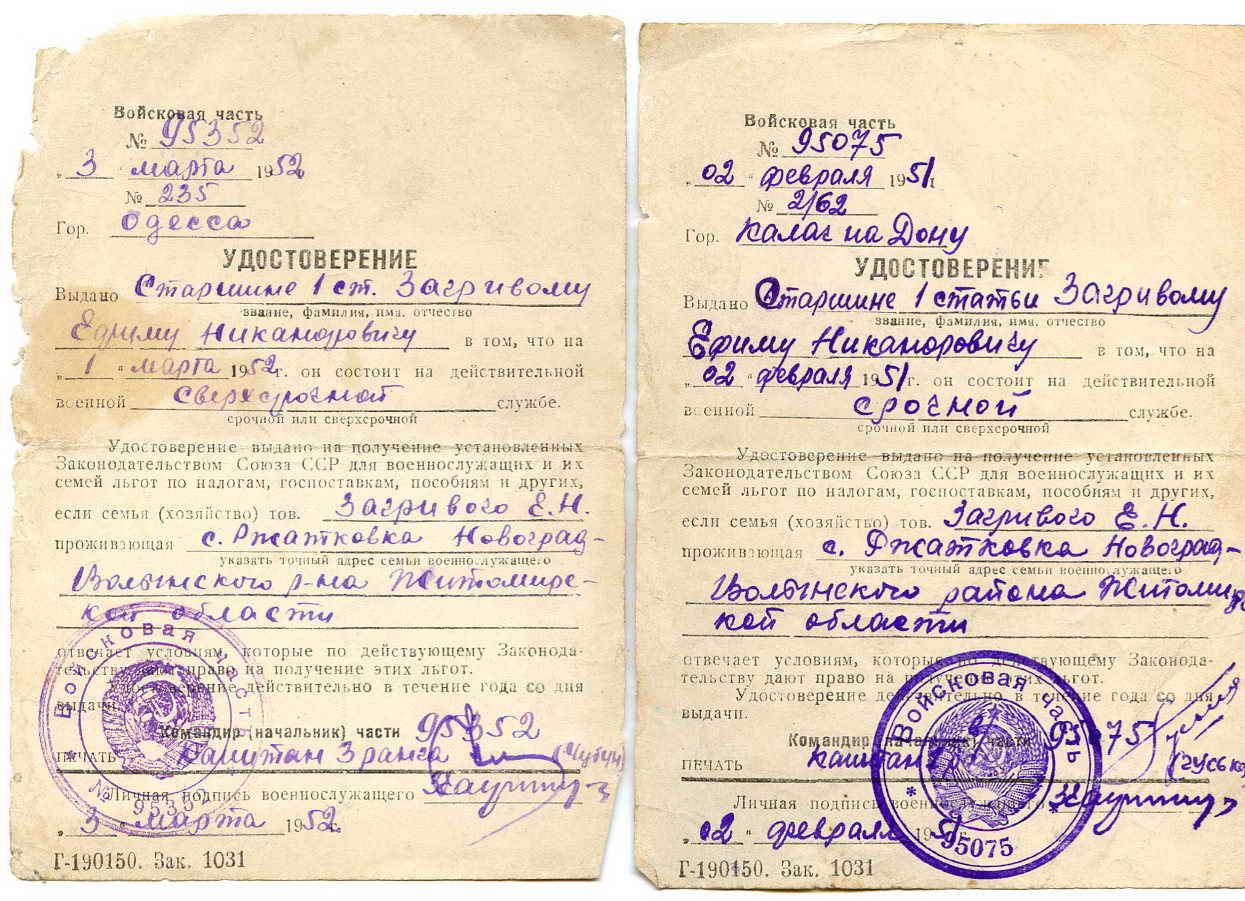 Войсковая часть
№ 95352
„ 3 " марта 1952
№ 235
Гор. Одесса
УДОСТОВЕРЕНИЕ
Выдано Старшине 1 ст. Загривому
звание, фамилия, имя, отчество
Ефиму Никандровичу в том, что на
„ 1 " марта 1952г. он состоит на действительной
военной сверхсрочной службе.
срочной или сверхсрочной
Удостоверение выдано на получение установленных
Законодательством Союза ССР для военнослужащих и их
семей льгот по налогам, госпоставкам, пособиям и других,
если семья (хозяйство) тов. Загривого Е.Н.
проживающая с. Ржатковка Новоград-
указать точный адрес семьи военнослужащего
Волынского р-на Житомирс-
кой области
отвечает условиям, которые по действующему Законода-
тельству дают право на получение этих льгот.
Удостоверение действительно в течение года со дня
выдачи.
Командир (начальник) части 95352
ПЕЧАТЬ Капитан 3 ранга
Личная подпись военнослужащего
„ 3 " марта 1952г.
Г-190150. Зак. 1031
Войсковая часть
№ 9535
Войсковая часть
№ 95075
„ 02 " февраля 1951г
№ 2/62
Гор. Калач на Дону
УДОСТОВЕРЕНИЕ
Выдано Старшине 1 статьи Загривому
звание, фамилия, имя, отчество
Ефиму Никаноровичу в том, что на
„ 02 " февраля 1951г. он состоит на действительной
военной срочной службе.
срочной или сверхсрочной
Удостоверение выдано на получение установленных
Законодательством Союза ССР для военнослужащих и их
семей льгот по налогам, госпоставкам, пособиям и других,
если семья (хозяйство) тов. Загривого Е.Н.
проживающая с. Ржатковка Новоград-
указать точный адрес семьи военнослужащего
Волынского района Житомирс
кой области
отвечает условиям, которые по действующему Законода-
тельству дают право на получение этих льгот.
Удостоверение действительно в течение года со дня
выдачи.
Командир (начальник) части 95075
ПЕЧАТЬ Капитан
Личная подпись военнослужащего
„ 02 " февраля 1951г.
Г-190150. Зак. 1031
Войсковая часть
95075